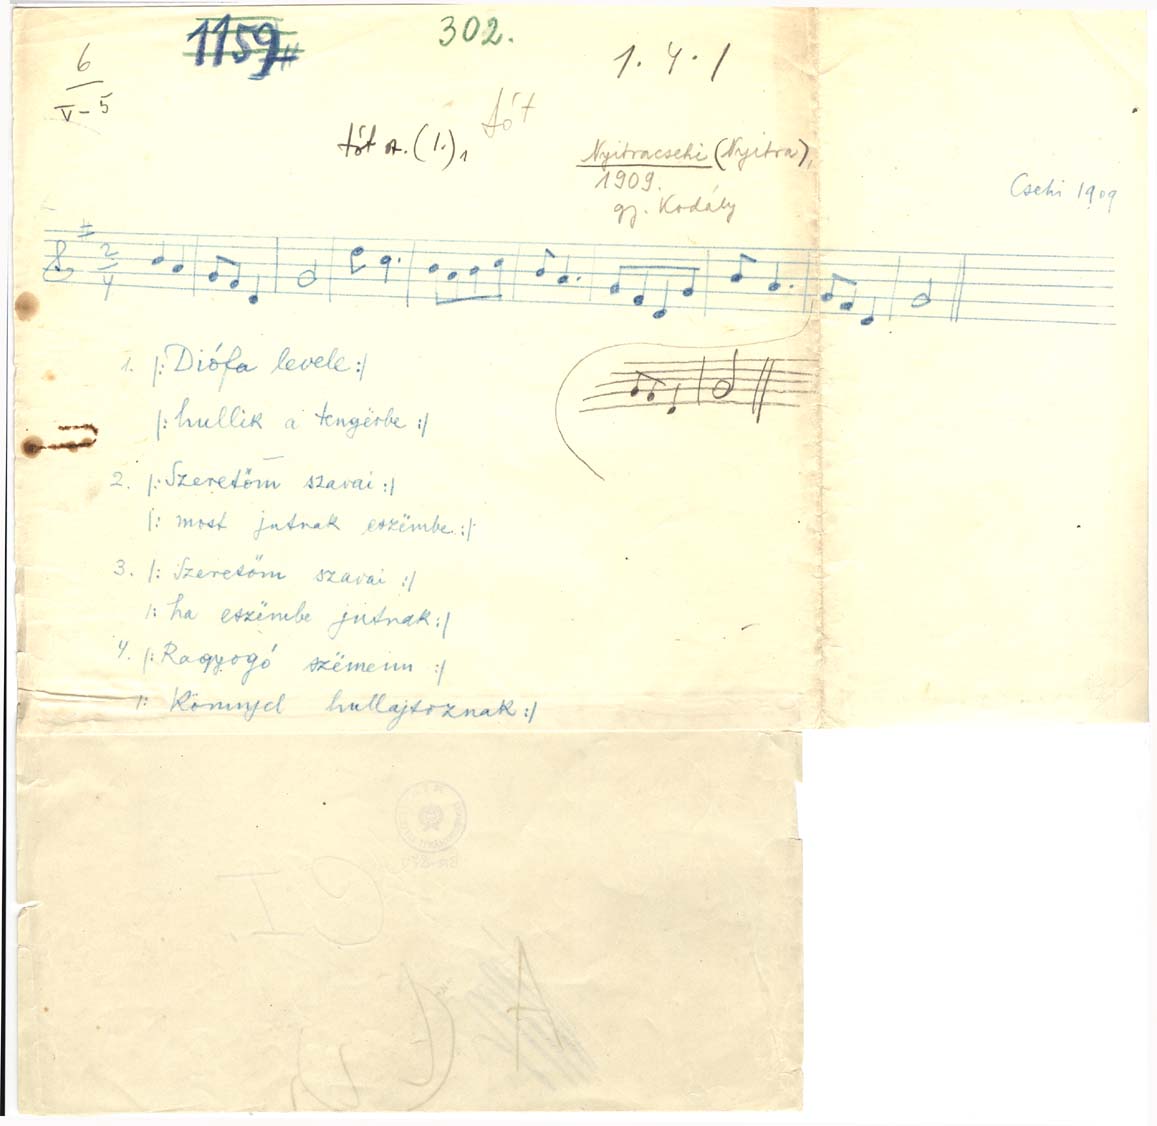 1159
302.
1.4.1
6
V-5
tót
tót sz. (1.)1
Nyitracsehi (Nyitra),
1909.
gy. Kodály
Csehi 1909
2
4
1. |: Diófa levele :|
|: hullik a tengërbe :|
2. |: Szeretőm szavai :|
|: most jutnak eszëmbe :|
3. |: Szeretőm szavai :|
|: ha eszëmbe jutnak :|
4. |: Ragyogó szëmeim :|
|: Könnyel hullajtoznak :|